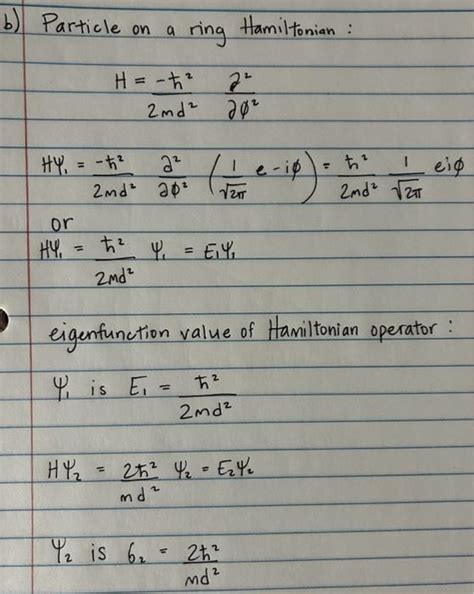 b) Particle on a ring Hamiltonian :
H = -ħ²/2md² ∂²/∂φ²
Hψ₁ = -ħ²/2md² ∂²/∂φ² (1/√2π e-iφ) = ħ²/2md² 1/√2π eiφ
or
Hψ₁ = ħ²/2md² ψ₁ = E₁ψ₁
eigenfunction value of Hamiltonian operator :
ψ₁ is E₁ = ħ²/2md²
Hψ₂ = 2ħ²/md² ψ₂ = E₂ψ₂
ψ₂ is 6₂ = 2ħ²/md²